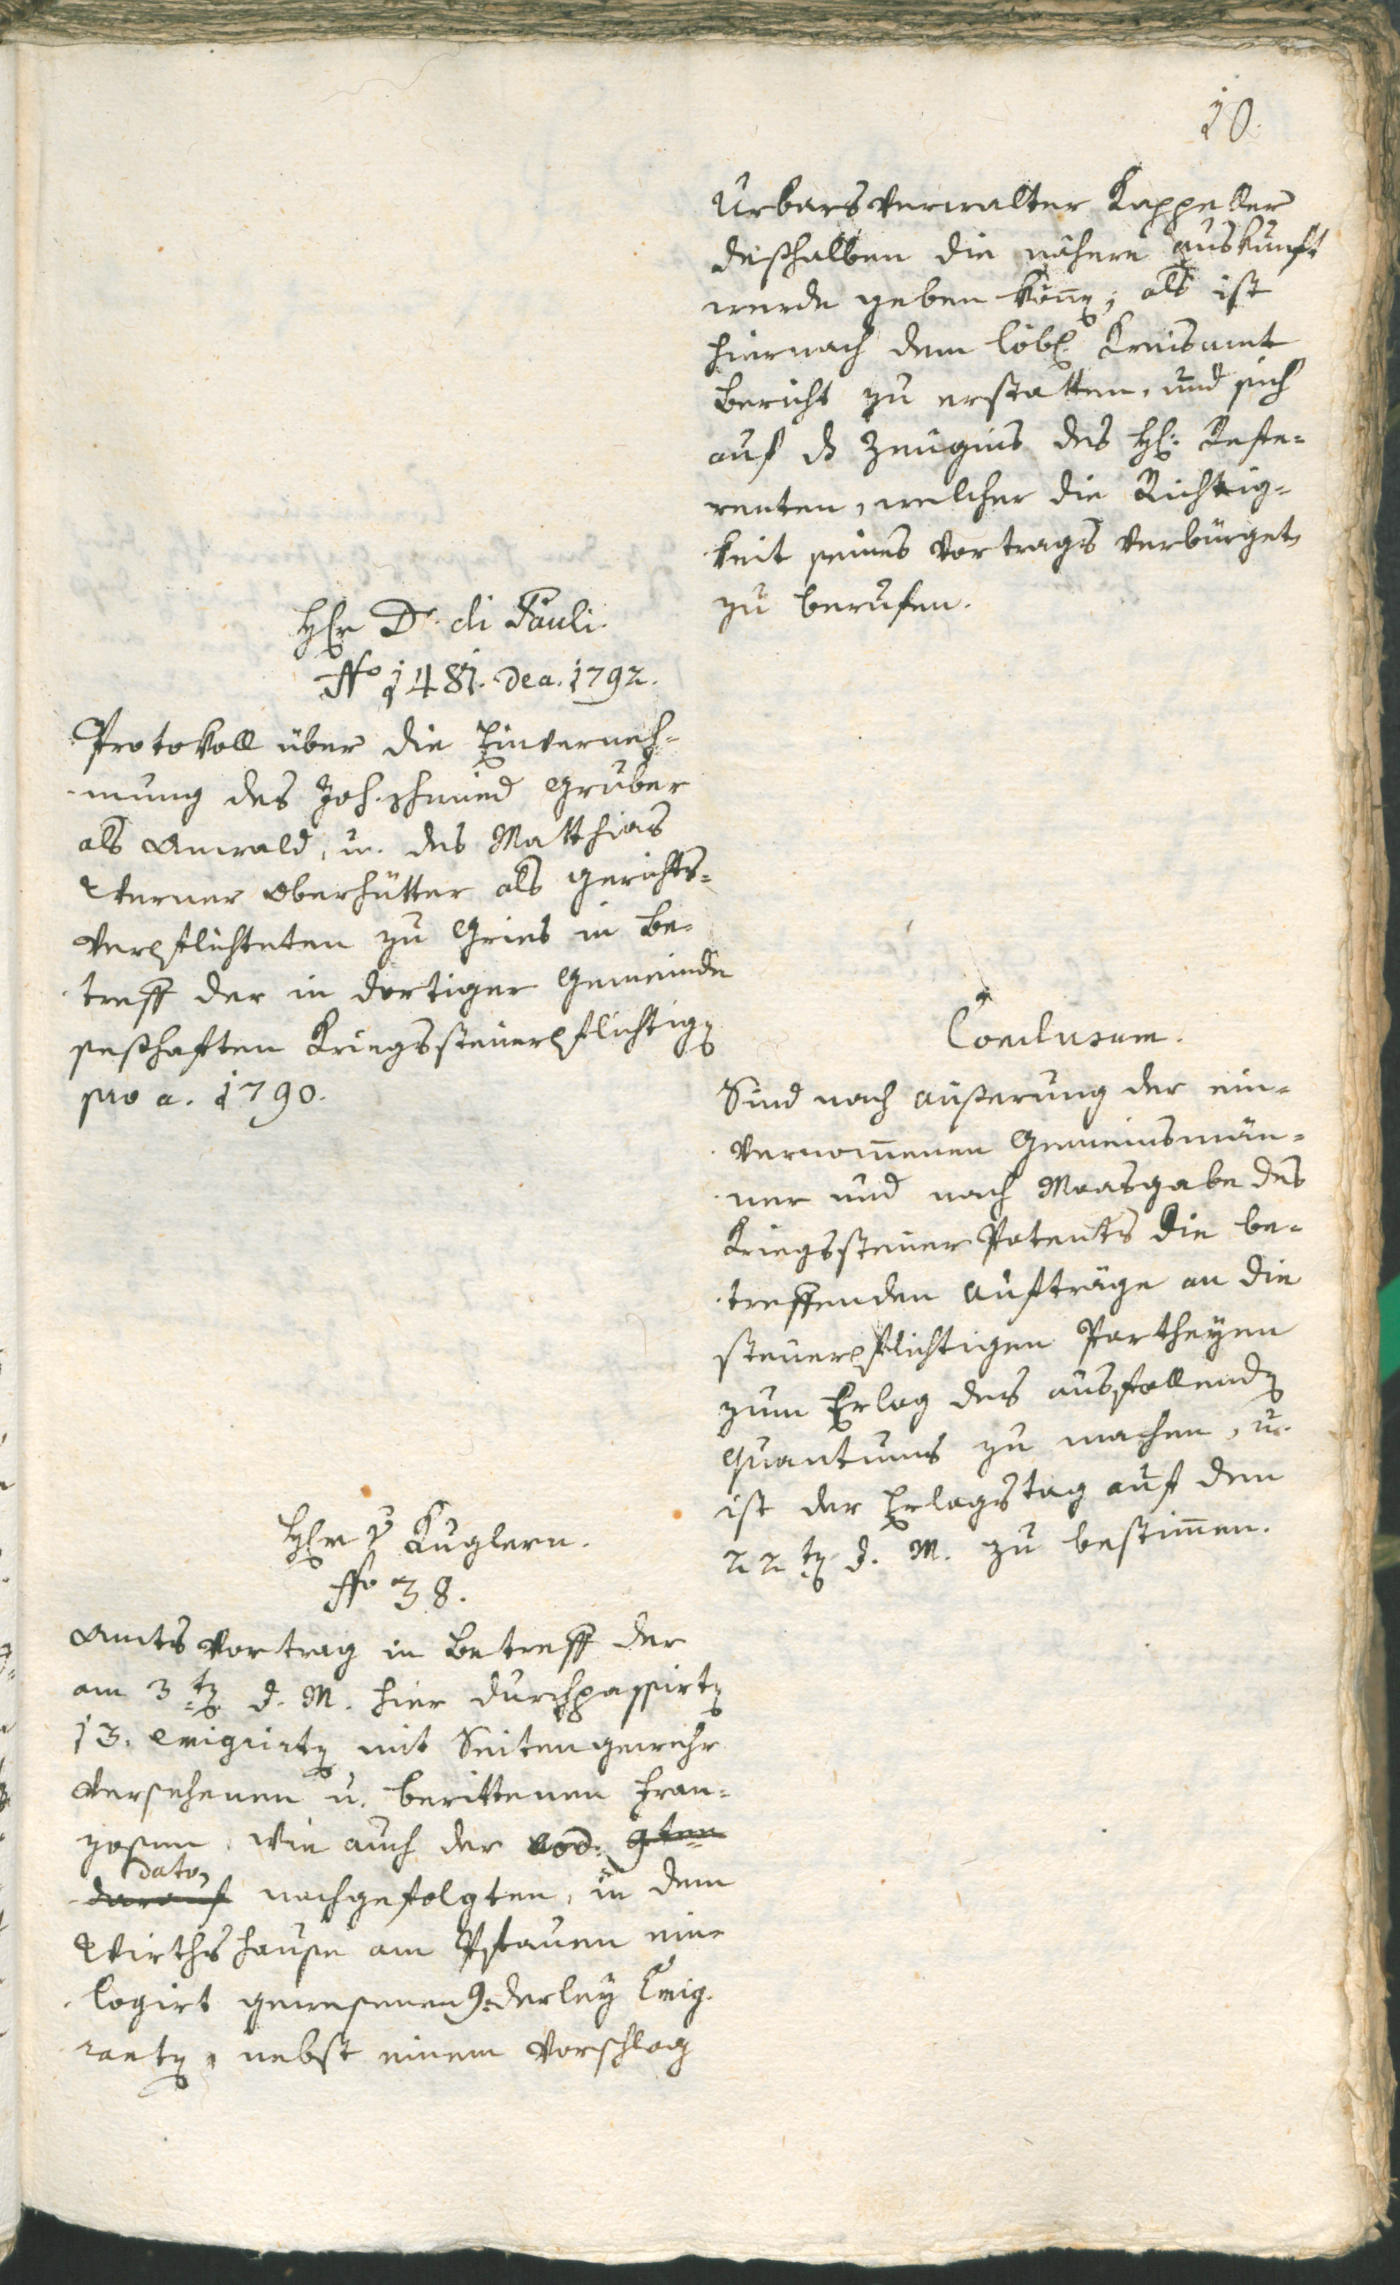 10.
Urbarsverwalter Kappeller
deßhalben die nähere auskunft
werde geben könn̄; als ist
hiernach dem löbl. Kreisamt
Bericht zu erstatten, und sich
auf ds Zeugnis des H: Refe-
renten, welcher die Richtig-
keit seines Vortrags verbürget,
zu berufen.
Hr Dr. di Pauli.
No 1481. de a. 1792.
Protokoll über die Einverneh-
mung des Joh. schmied Gruber
als Anwald, u. des Matthias
Werner Oberhütter als gerichts-
verpflichteten zu Gries in be-
treff der in dortiger Gemeinde
seßhaften Kriegssteuerpflichtigen
pro a. 1790.
Conclusum.
Sind nach äußerung der ein-
vernom̄enen Gemeinsmän-
ner und nach Maasgabe des
Kriegssteuer Patents die be-
treffenden Aufträge an die
steuerpflichtigen Partheyen
zum Erlag des ausfallenden
Quantums zu machen, u.
ist der Erlagstag auf den
22ten d. M. zu bestim̄en.
Hr v Kuglern.
No 38.
Amtsvortrag in Betreff der
am 3ten d. M. hier durchpassirten
13. emigrirten mit Seitengewehr
versehenen u. berittenen Fran-
zosen, wie auch der eod. 9ten
dato,
darauf nachgefolgten, in dem
Wirthshause am Pfauen ein-
logirt gewesenen 9. derley Emig-
ranten, nebst einem Vorschlag